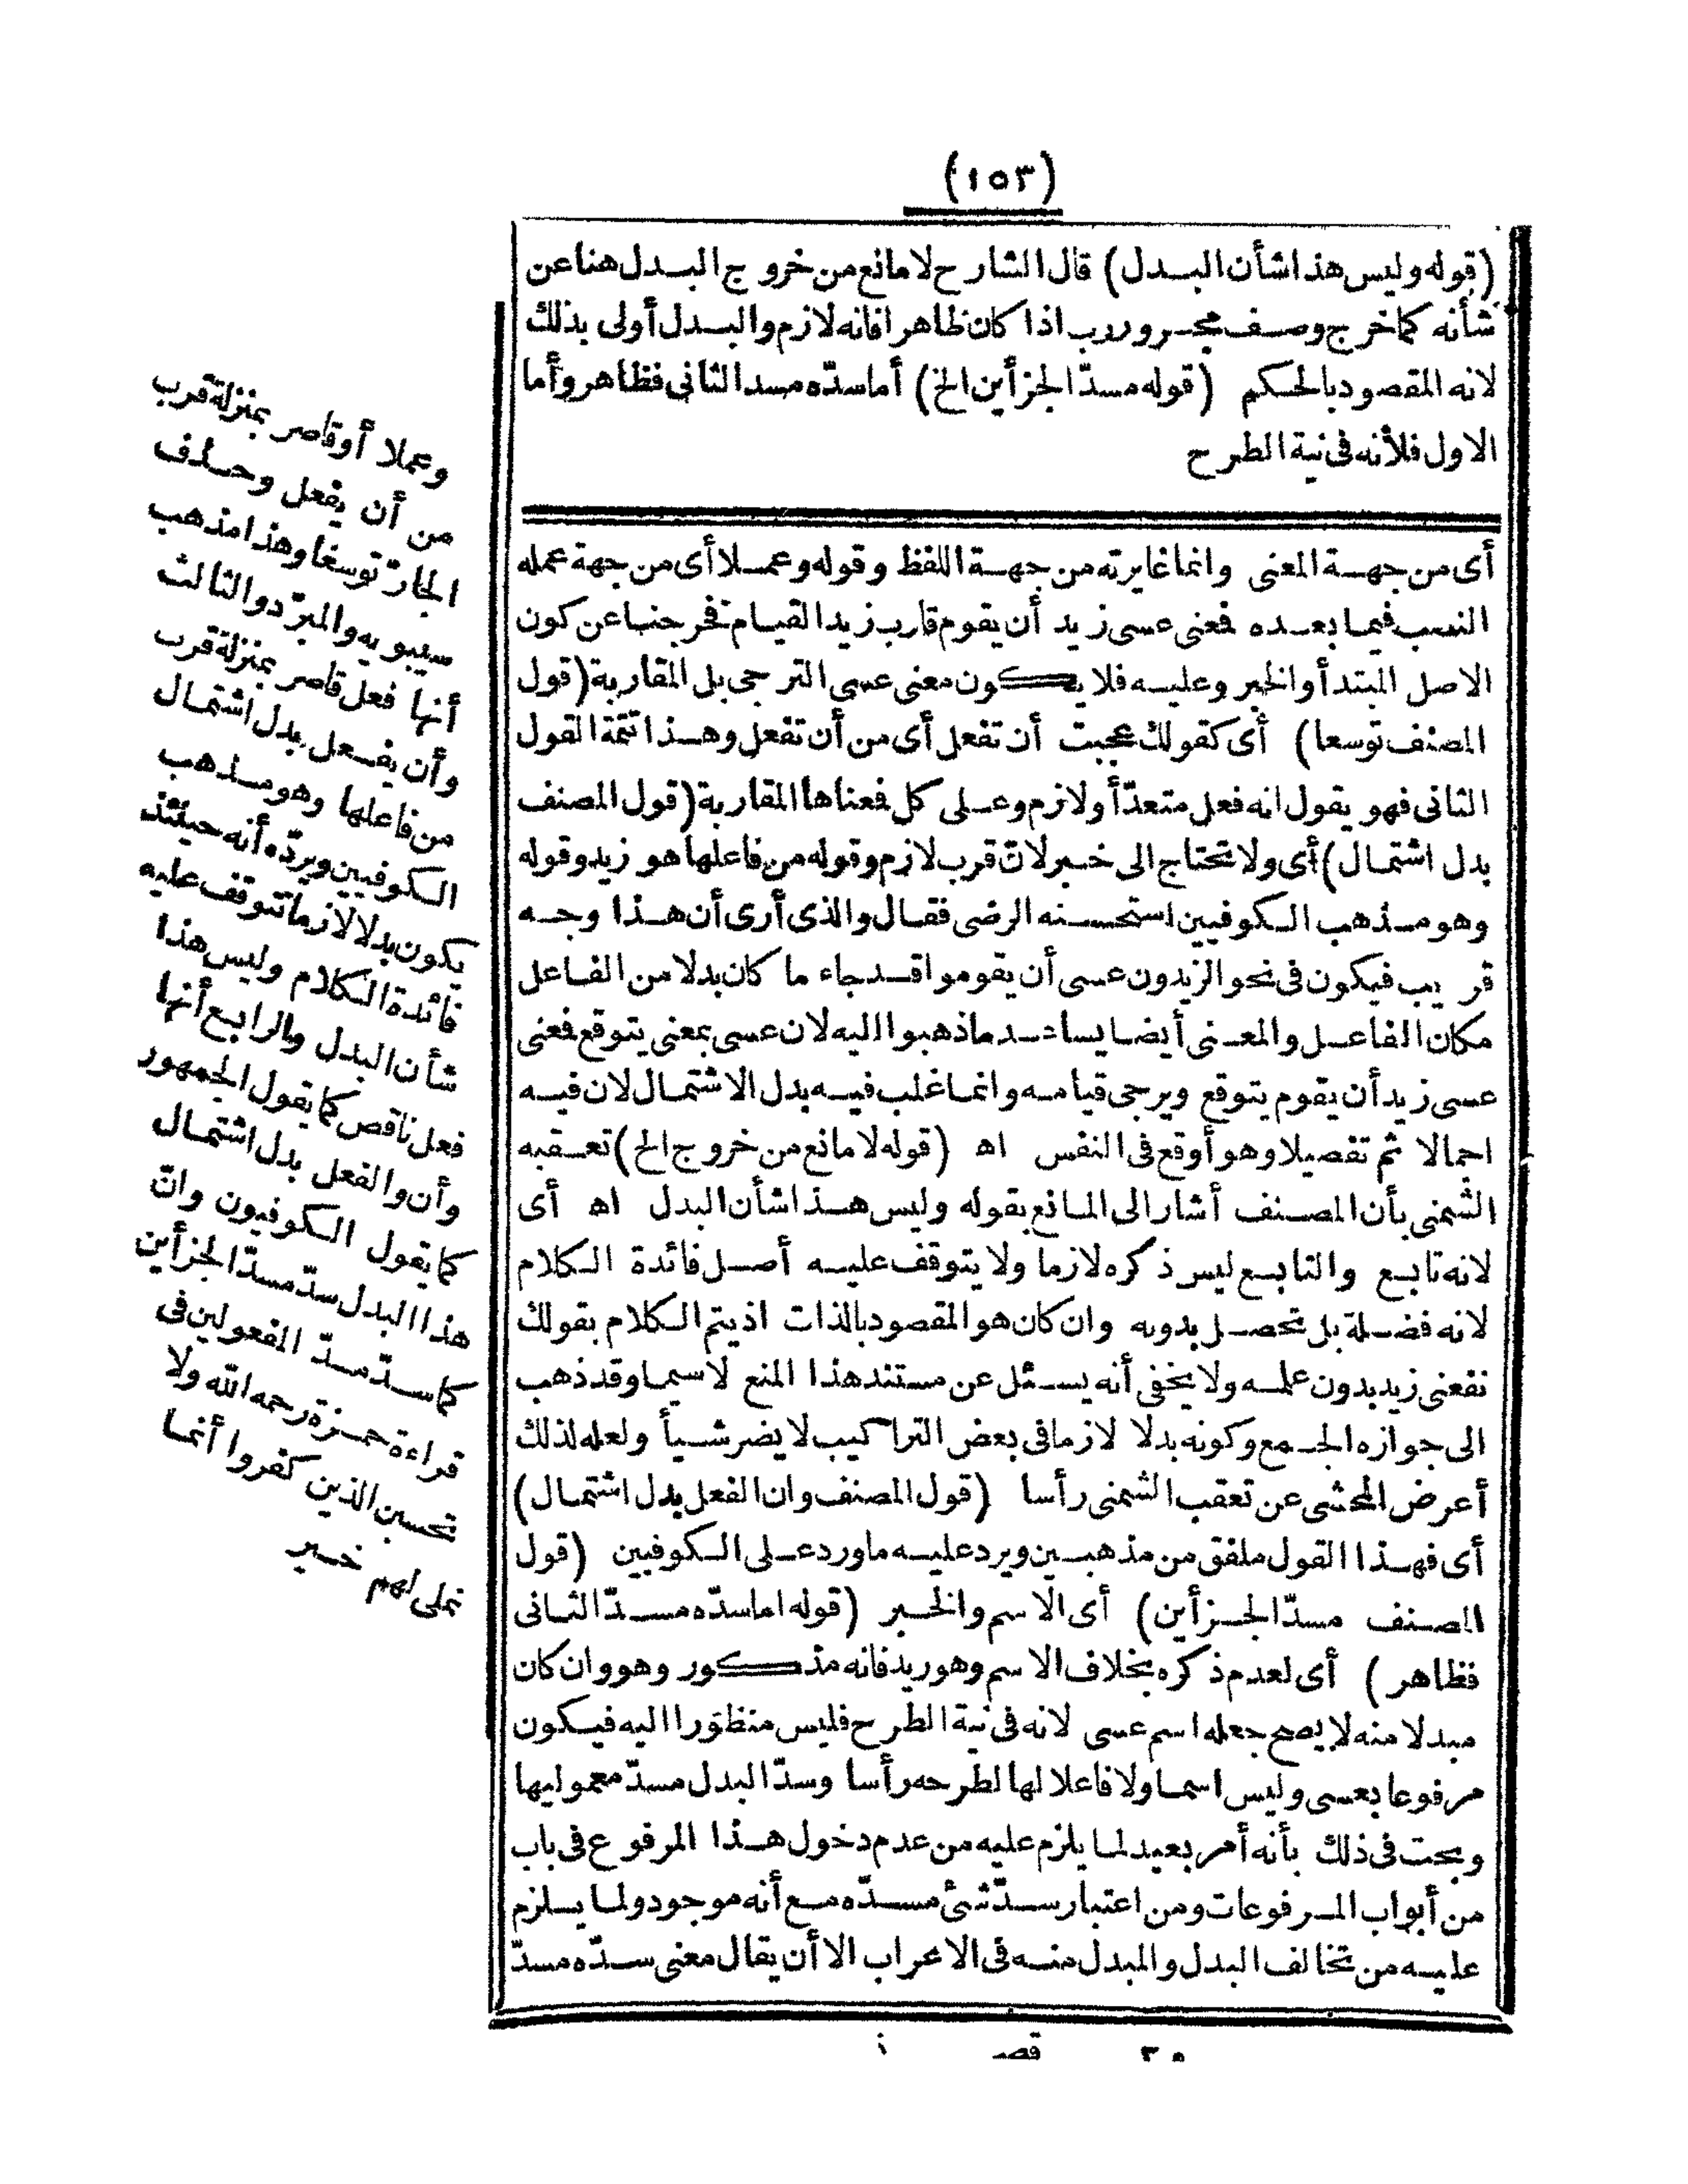 (١٥٣)
(قوله وليس هذا شأن البدل) قال الشارح لا مانع من خروج البدل هنا عن
شأنه كما خرج وصف مجرور رب اذا كان ظاهرا فانه لازم والبدل أولى بذلك
لانه المقصود بالحكم (قوله مسدّ الجزأين الخ) أما سدّه مسد الثاني فظاهر وأما
الاول فلأنه فى نية الطرح
أى من جهة المعنى وانما غايرته من جهة اللفظ وقوله وعملا أى من جهة عمله
النصب فيما بعده فمعنى عسى زيد أن يقوم قارب زيد القيام فخرجنا عن كون
الاصل المبتدأ والخبر وعليه فلا يكون معنى عسى الترجى بل المقاربة (قول
المصنف توسعا) أى كقولك عجبت أن تفعل أى من أن تفعل وهذا تتمة القول
الثانى فهو يقول انه فعل متعدّ أو لازم وعلى كل فمعناها المقاربة (قول المصنف
بدل اشتمال) أى ولا تحتاج الى خبر لانّ قرب لازم وقوله من فاعلها هو زيد وقوله
وهو مذهب الكوفيين استحسنه الرضى فقال والذى أرى أن هذا وجه
قريب فيكون فى نحو الزيدون عسى أن يقوموا قد جاء ما كان بدلا من الفاعل
مكان الفاعل والمعنى أيضا يساعد ما ذهبوا اليه لان عسى بمعنى يتوقع فمعنى
عسى زيد أن يقوم يتوقع ويرجى قيامه وانما غلب فيه بدل الاشتمال لان فيه
اجمالا ثم تفصيلا وهو أوقع فى النفس اه (قوله لا مانع من خروج الخ) تعقبه
الشمنى بأن المصنف أشار الى المانع بقوله وليس هذا شأن البدل اه أى
لانه تابع والتابع ليس ذكره لازما ولا يتوقف عليه أصل فائدة الكلام
لانه فضلة بل تحصل بدونه وان كان هو المقصود بالذات اذ يتم الكلام بقولك
نفعنى زيد بدون علمه ولا يخفى أنه يسئل عن مستند هذا المنع لا سيما وقد ذهب
الى جوازه الجمع وكونه بدلا لازما فى بعض التراكيب لا يضر شيأ ولعله لذلك
أعرض المحشى عن تعقب الشمنى رأسا (قول المصنف وان الفعل بدل اشتمال)
أى فهذا القول ملفق من مذهبين ويرد عليه ما ورد على الكوفيين (قول
المصنف مسدّ الجزأين) أى الاسم والخبر (قوله اما سدّه مسدّ الثانى
فظاهر) أى لعدم ذكره بخلاف الاسم وهو زيد فانه مذكور وهو وان كان
مبدلا منه لا يصح جعله اسم عسى لانه فى نية الطرح فليس منظورا اليه فيكون
مرفوعا بعسى وليس اسما ولا فاعلا لها لطرحه رأسا وسدّ البدل مسدّ معموليها
وبحت فى ذلك بأنه أمر بعيد لما يلزم عليه من عدم دخول هذا المرفوع فى باب
من أبواب المرفوعات ومن اعتبار سدّ شئ مسدّه مع أنه موجود ولما يلزم
عليه من تخالف البدل والمبدل منه فى الاعراب الا أن يقال معنى سدّه مسدّ
وعملا أو قاصر بمنزلة قرب
من أن يفعل وحذف
الجارّ توسعا وهذا مذهب
سيبويه والمبرّد والثالث
أنها فعل قاصر بمنزلة قرب
وأن يفعل بدل اشتمال
من فاعلها وهو مذهب
الكوفيين ويردّه أنه حينئذ
يكون بدلا لازما تتوقف عليه
فائدة الكلام وليس هذا
شأن البدل والرابع أنها
فعل ناقص كما يقول الجمهور
وأن والفعل بدل اشتمال
كما يقول الكوفيون وانّ
هذا البدل سدّ مسدّ الجزأين
كما سدّ مسدّ المفعولين فى
قراءة حمزة رحمه الله ولا
تحسبن الذين كفروا أنما
نملى لهم خير
٢٠ قصر ن